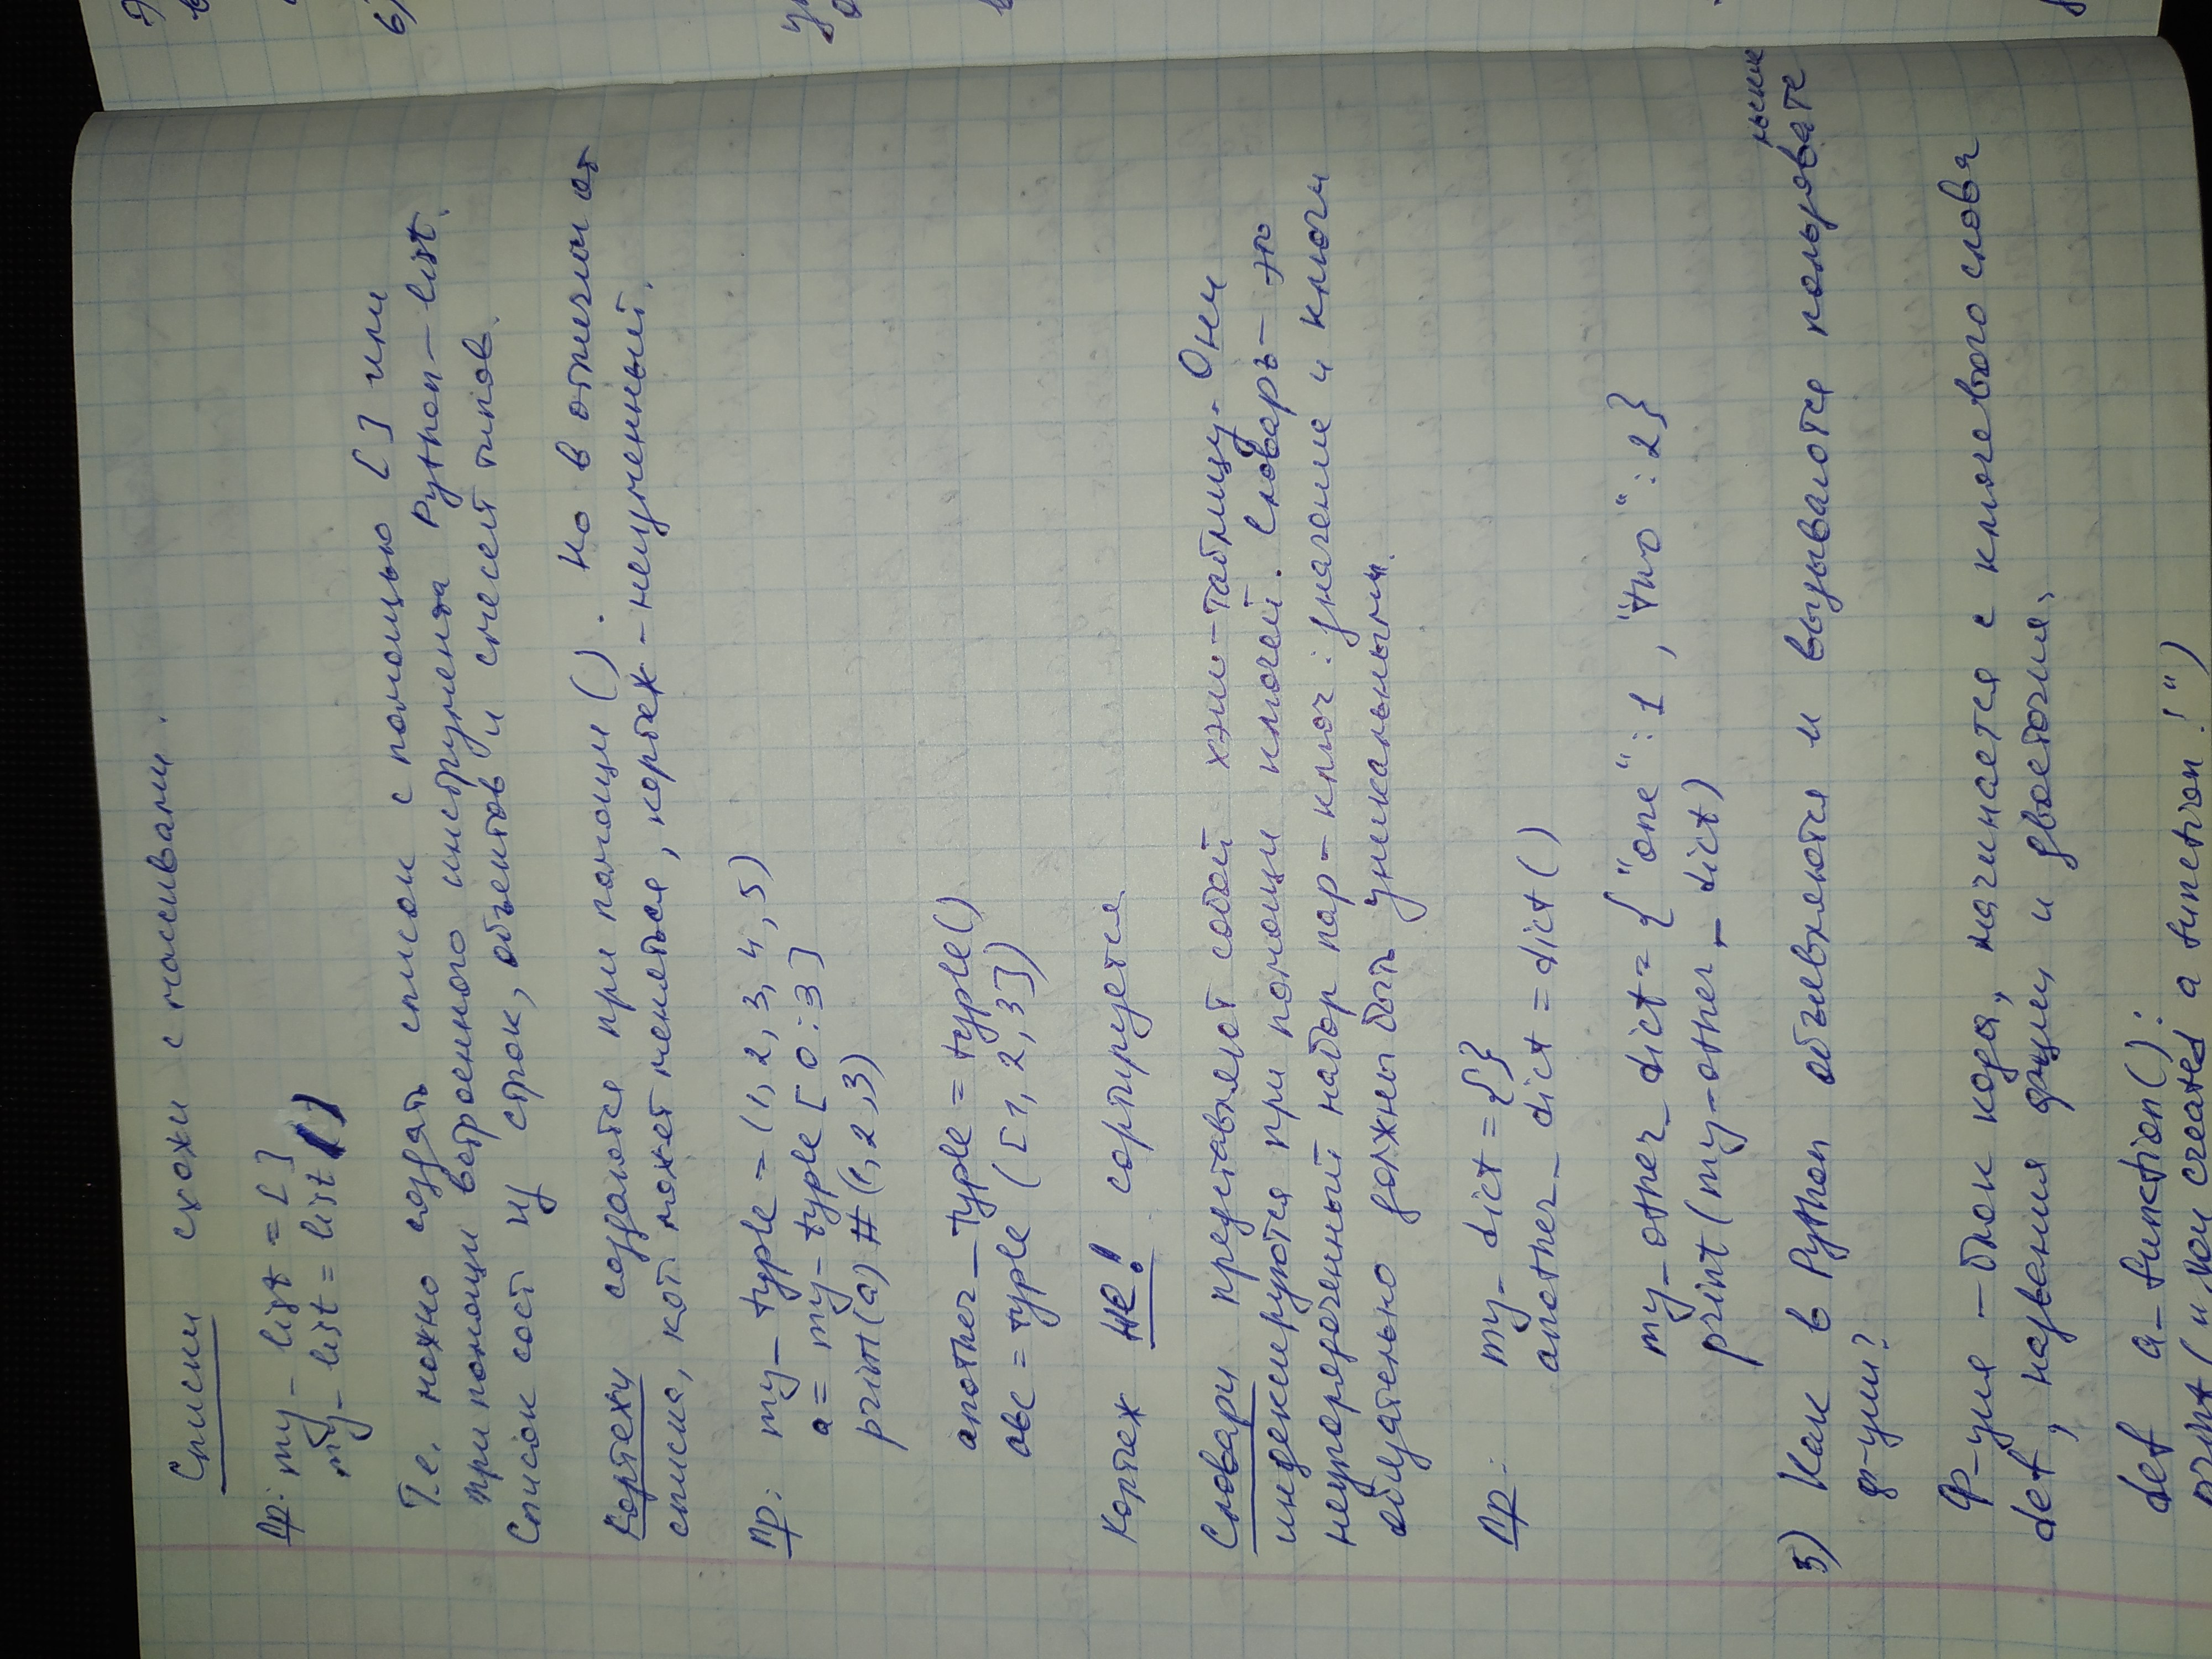 Списки схожи с массивами.
Пр: my_list = []
my_list = list()
Т.е. можно создать список с помощью [] или
при помощи встроенного инструмента Python - list.
Список сост из строк, объектов и смесей типов.
Кортежи создаются при помощи (). Но в отличии от
списка, кот. может меняться, кортеж - неизменный.
Пр: my_typle = (1, 2, 3, 4, 5)
a = my_typle [0:3]
print(a) # (1, 2, 3)
another_typle = typle()
abc = typle ([1, 2, 3])
Кортеж НЕ! сортируется
Словари представляют собой хэш-таблицу. Они
индексируются при помощи ключей. Словарь - это
неупорядоченный набор пар - ключ : значение и ключи
обязательно должны быть уникальными.
Пр: my_dict = {}
another_dict = dict()
my_other_dict = {"one" : 1, "two" : 2}
print(my_other_dict)
5) Как в Python объявляются и вызываются пользовательские
ф-ции?
Ф-ция - блок кода, начинается с ключевого слова
def, названия ф-ции и двоеточия.
def a_function():
print("You created a function!")
6)